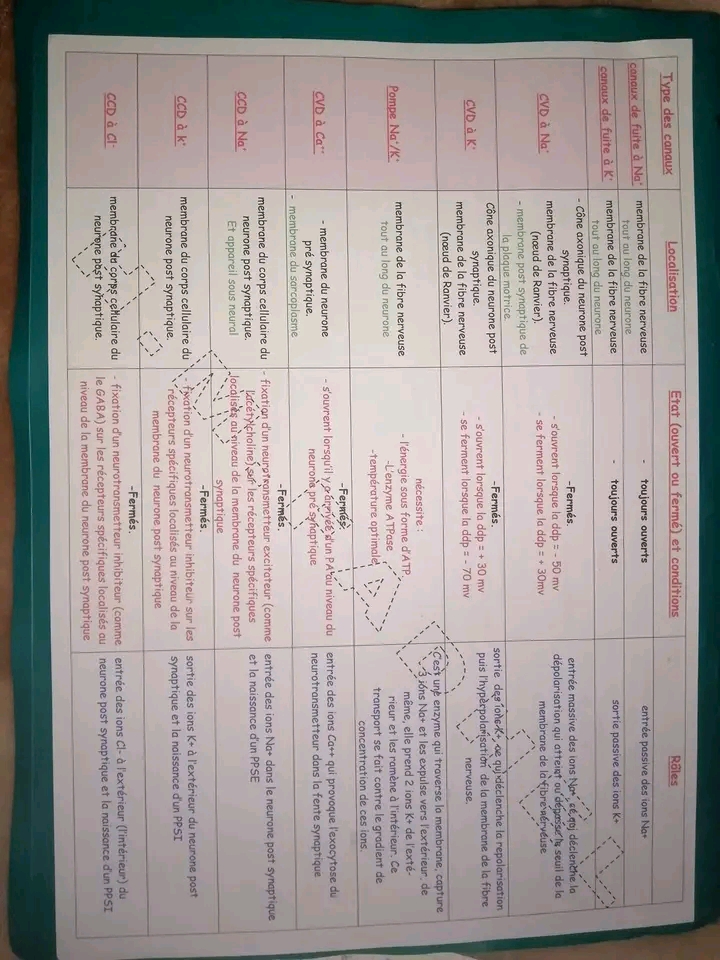 Type des canaux
Localisation
Etat (ouvert ou fermé) et conditions
Rôles
canaux de fuite à Na⁺
membrane de la fibre nerveuse
tout au long du neurone
- toujours ouverts
entrée passive des ions Na+
canaux de fuite à K⁺
membrane de la fibre nerveuse
tout au long du neurone
- toujours ouverts
sortie passive des ions K+
CVD à Na⁺
- Cône axonique du neurone post
synaptique.
membrane de la fibre nerveuse
(nœud de Ranvier).
- membrane post synaptique de
la plaque motrice.
-Fermés.
- s'ouvrent lorsque la ddp = - 50 mv
- se ferment lorsque la ddp = + 30mv
entrée massive des ions Na+, ce qui déclenche la
dépolarisation qui atteint ou dépasse le seuil de la
membrane de la fibre nerveuse
CVD à K⁺
Cône axonique du neurone post
synaptique.
membrane de la fibre nerveuse
(nœud de Ranvier).
-Fermés.
- s'ouvrent lorsque la ddp = + 30 mv
- se ferment lorsque la ddp = - 70 mv
sortie des ions K+, ce qui déclenche la repolarisation
puis l'hyperpolarisation de la membrane de la fibre
nerveuse.
Pompe Na⁺/K⁺
membrane de la fibre nerveuse
tout au long du neurone
nécessite :
- l'énergie sous forme d'ATP
-L'enzyme ATPase
-température optimale
C'est une enzyme qui traverse la membrane, capture
3 ions Na+ et les expulse vers l'extérieur, de
même, elle prend 2 ions K+ de l'exté-
rieur et les ramène à l'intérieur. Ce
transport se fait contre le gradient de
concentration de ces ions.
CVD à Ca⁺⁺
- membrane du neurone
pré synaptique.
- membrane du sarcoplasme
-Fermés.
- s'ouvrent lorsqu'il y a arrivée d'un PA au niveau du
neurone pré synaptique
entrée des ions Ca++ qui provoque l'exocytose du
neurotransmetteur dans la fente synaptique
CCD à Na⁺
membrane du corps cellulaire du
neurone post synaptique.
Et appareil sous neural
-Fermés.
- fixation d'un neurotransmetteur excitateur (comme
l'acétylcholine) sur les récepteurs spécifiques
localisés au niveau de la membrane du neurone post
synaptique
entrée des ions Na+ dans le neurone post synaptique
et la naissance d'un PPSE
CCD à k⁺
membrane du corps cellulaire du
neurone post synaptique.
-Fermés.
- fixation d'un neurotransmetteur inhibiteur sur les
récepteurs spécifiques localisés au niveau de la
membrane du neurone post synaptique
sortie des ions K+ à l'extérieur du neurone post
synaptique et la naissance d'un PPSI
CCD à Cl⁻
membrane de corps cellulaire du
neurone post synaptique.
-Fermés.
- fixation d'un neurotransmetteur inhibiteur (comme
le GABA) sur les récepteurs spécifiques localisés au
niveau de la membrane du neurone post synaptique
entrée des ions Cl- à l'extérieur (l'intérieur) du
neurone post synaptique et la naissance d'un PPSI